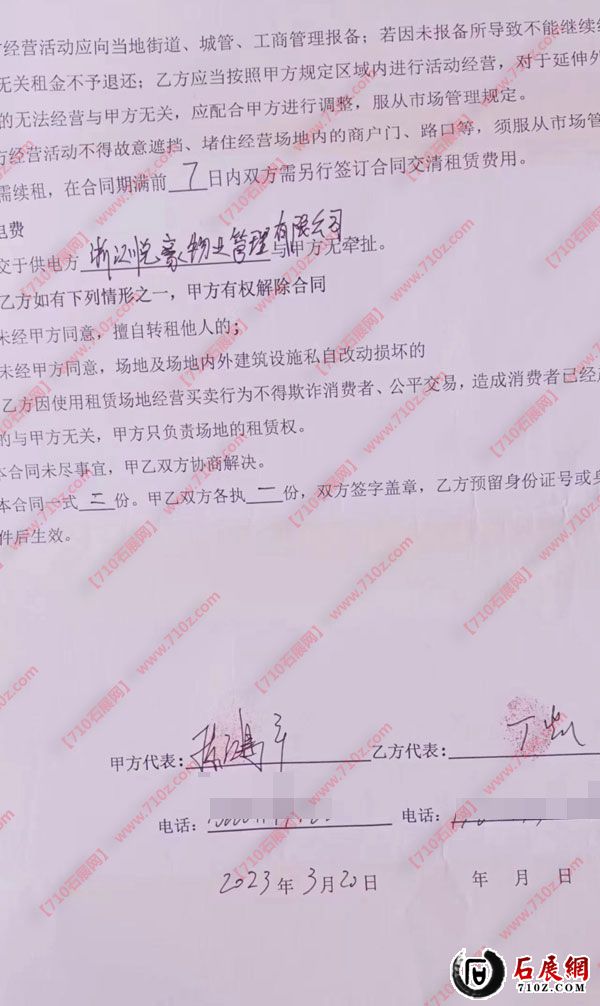 经营活动应向当地街道、城管、工商管理报备；若因未报备所导致不能继续
无关租金不予退还；乙方应当按照甲方规定区域内进行活动经营，对于延伸外
的无法经营与甲方无关，应配合甲方进行调整，服从市场管理规定。
方经营活动不得故意遮挡、堵住经营场地内的商户门、路口等，须服从市场管
需续租，在合同期满前 7 日内双方需另行签订合同交清租赁费用。
电费
交于供电方 浙江悦豪物业管理有限公司 与甲方无牵扯。
乙方如有下列情形之一，甲方有权解除合同
未经甲方同意，擅自转租他人的；
未经甲方同意，场地及场地内外建筑设施私自改动损坏的
乙方因使用租赁场地经营买卖行为不得欺诈消费者、公平交易，造成消费者已经
的与甲方无关，甲方只负责场地的租赁权。
本合同未尽事宜，甲乙双方协商解决。
本合同一式 二 份。甲乙双方各执 一 份，双方签字盖章，乙方预留身份证号或身
件后生效。
甲方代表： 乙方代表：
电话： 电话：
2023年 3月20日 年 月 日
【710石展网】 www.710z.com
石展網
710Z.COM